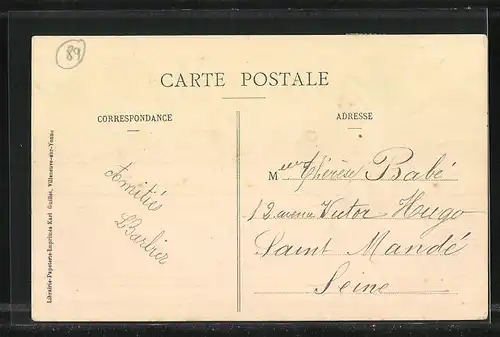 89
CARTE POSTALE
CORRESPONDANCE
ADRESSE
Amitié
LBarbier
Melle Thérèse Babé
12 avenue Victor Hugo
Saint Mandé
Seine
Librairie-Papeterie-Imprimes Karl Guillot, Villeneuve-sur-Yonne